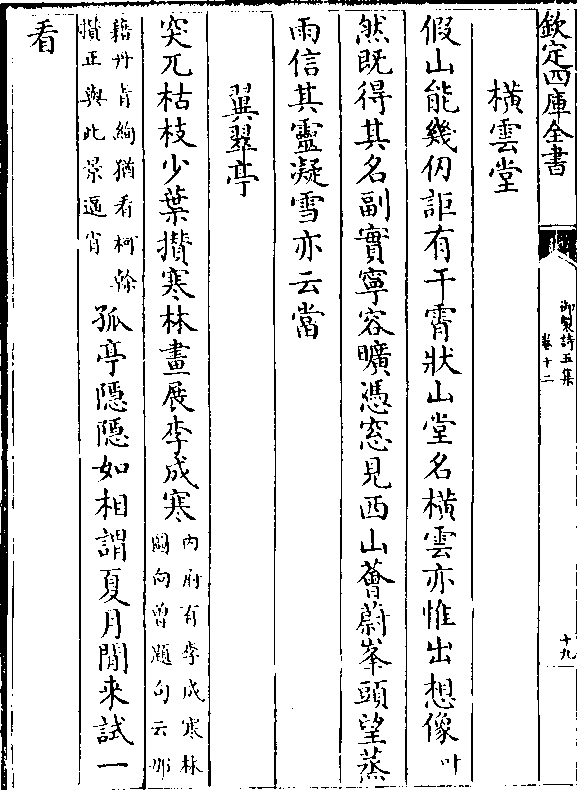 欽定四庫全書
御製詩五集
卷十二
十九
橫雲堂
假山能幾仞詎有干霄狀山堂名橫雲亦惟出想像叶
然既得其名副實寧容曠憑窓見西山薈蔚峯頭望蒸
雨信其靈凝雪亦云當
翼翠亭
突兀枯枝少葉攅寒林畫展李成寒
內府有李成寒林
圖向曾題句云那
藉丹青絢猶看柯榦
攅正與此景逼肖
孤亭隱隱如相謂夏月閒来試一
看